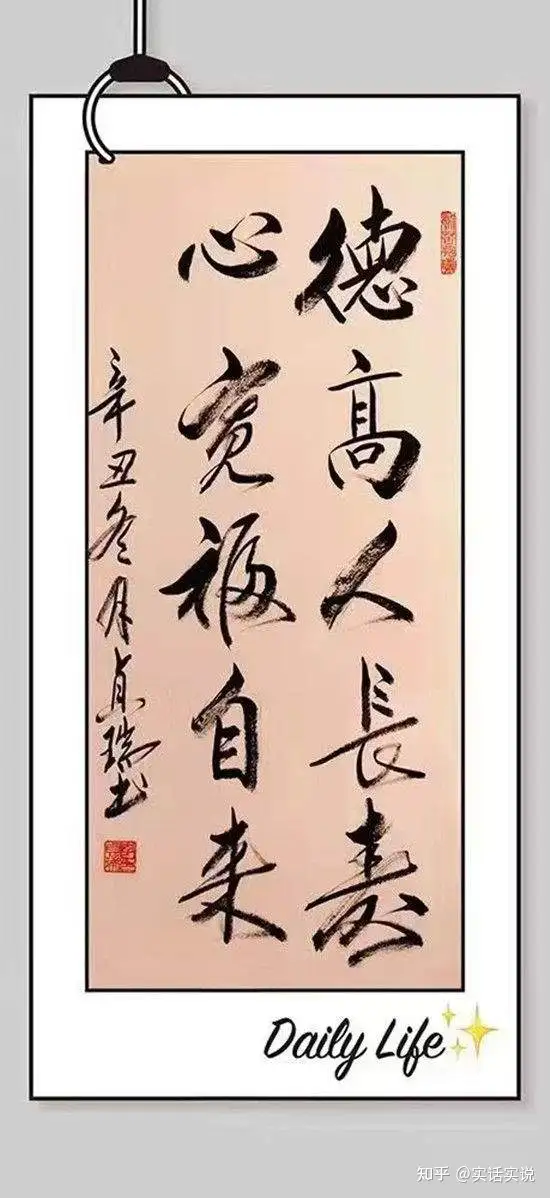 德高人長壽
心宽福自来
辛丑冬月贞瑞书
Daily Life
知乎 @实话实说